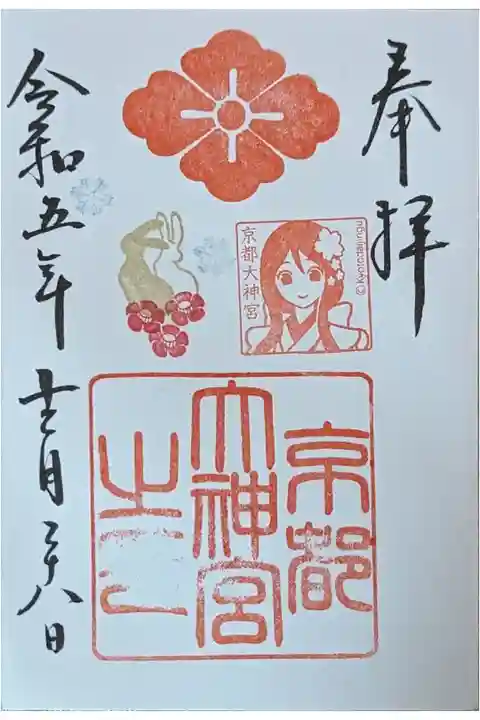 奉拝
京都大神宮
京都
大神宮
之
令和五年十二月二十八日